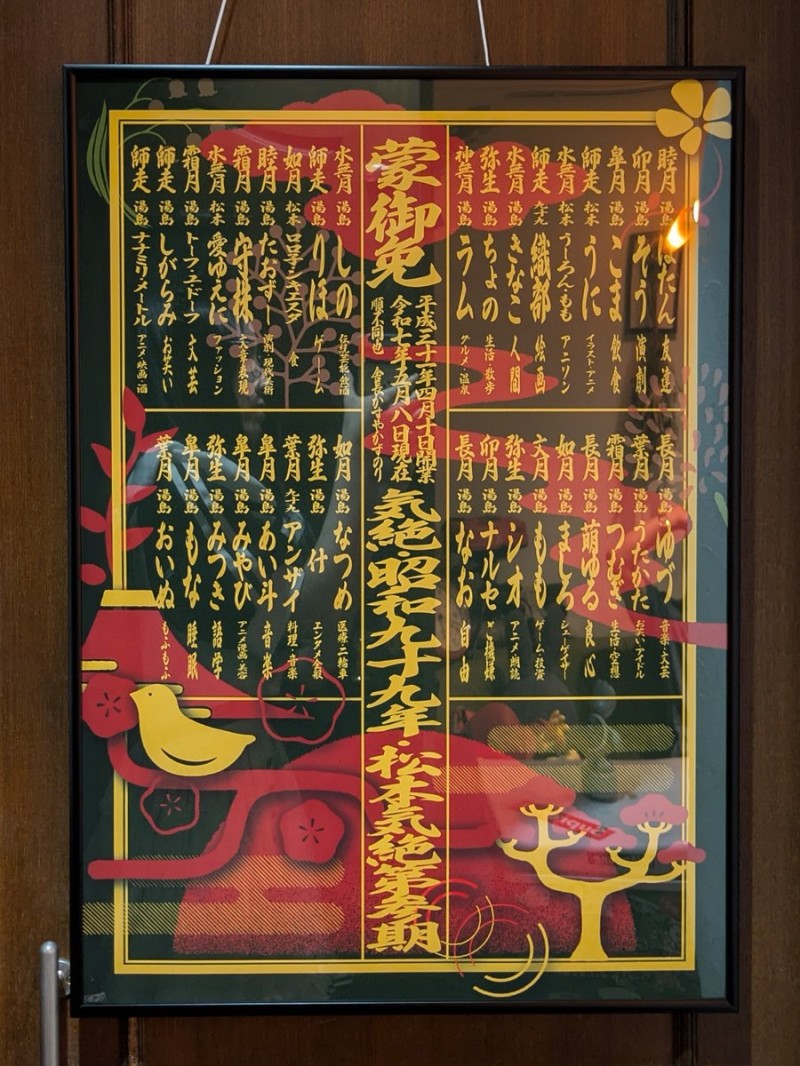 睦月 湯島 ぼたん 友達
卯月 湯島 そう 演劇
皐月 湯島 こま 飲食
師走 松本 うに イラスト・アニメ
水無月 松本 うーろんもも アニソン
師走 九十九 織部 絵画
水無月 湯島 きなこ 人間
弥生 湯島 ちょの 生活・散歩
神無月 湯島 ラム グルメ・温泉
長月 湯島 ゆづ 音楽・文芸
葉月 湯島 うたかた お笑い・アイドル
霜月 湯島 つむぎ 生活・空想
長月 湯島 萌ゆる 良心
如月 湯島 ましろ
文月 湯島 もも ゲーム・投資
弥生 湯島 シオ アニメ・朗読
卯月 湯島 ナルセ ど根性
長月 湯島 なお 自由
蒙御免
平成三十一年四月十日開業
令和七年五月八日現在
順不同也
気絶・昭和九十九年・松本気絶第参期
水無月 湯島 しの
師走 湯島 りほ ゲーム
如月 松本 食
睦月 湯島 たおずー 演劇・現代美術
霜月 湯島 守株 文章表現
水無月 松本 愛ゆえに ファッション
霜月 湯島 トーフ・ユドーフ 文芸
師走 湯島 しがらみ お笑い
師走 湯島 ナナミリメートル アニメ・映画・酒
如月 湯島 なつめ 医療・二輪車
弥生 湯島 付 エンタメ全般
葉月 九十九 アンザイ 料理・音楽
皐月 湯島 あい斗 音楽
皐月 湯島 みやび アニメ・漫画・美容
弥生 湯島 みつき 語学
皐月 湯島 もな 睡眠
葉月 湯島 おいぬ もふもふ